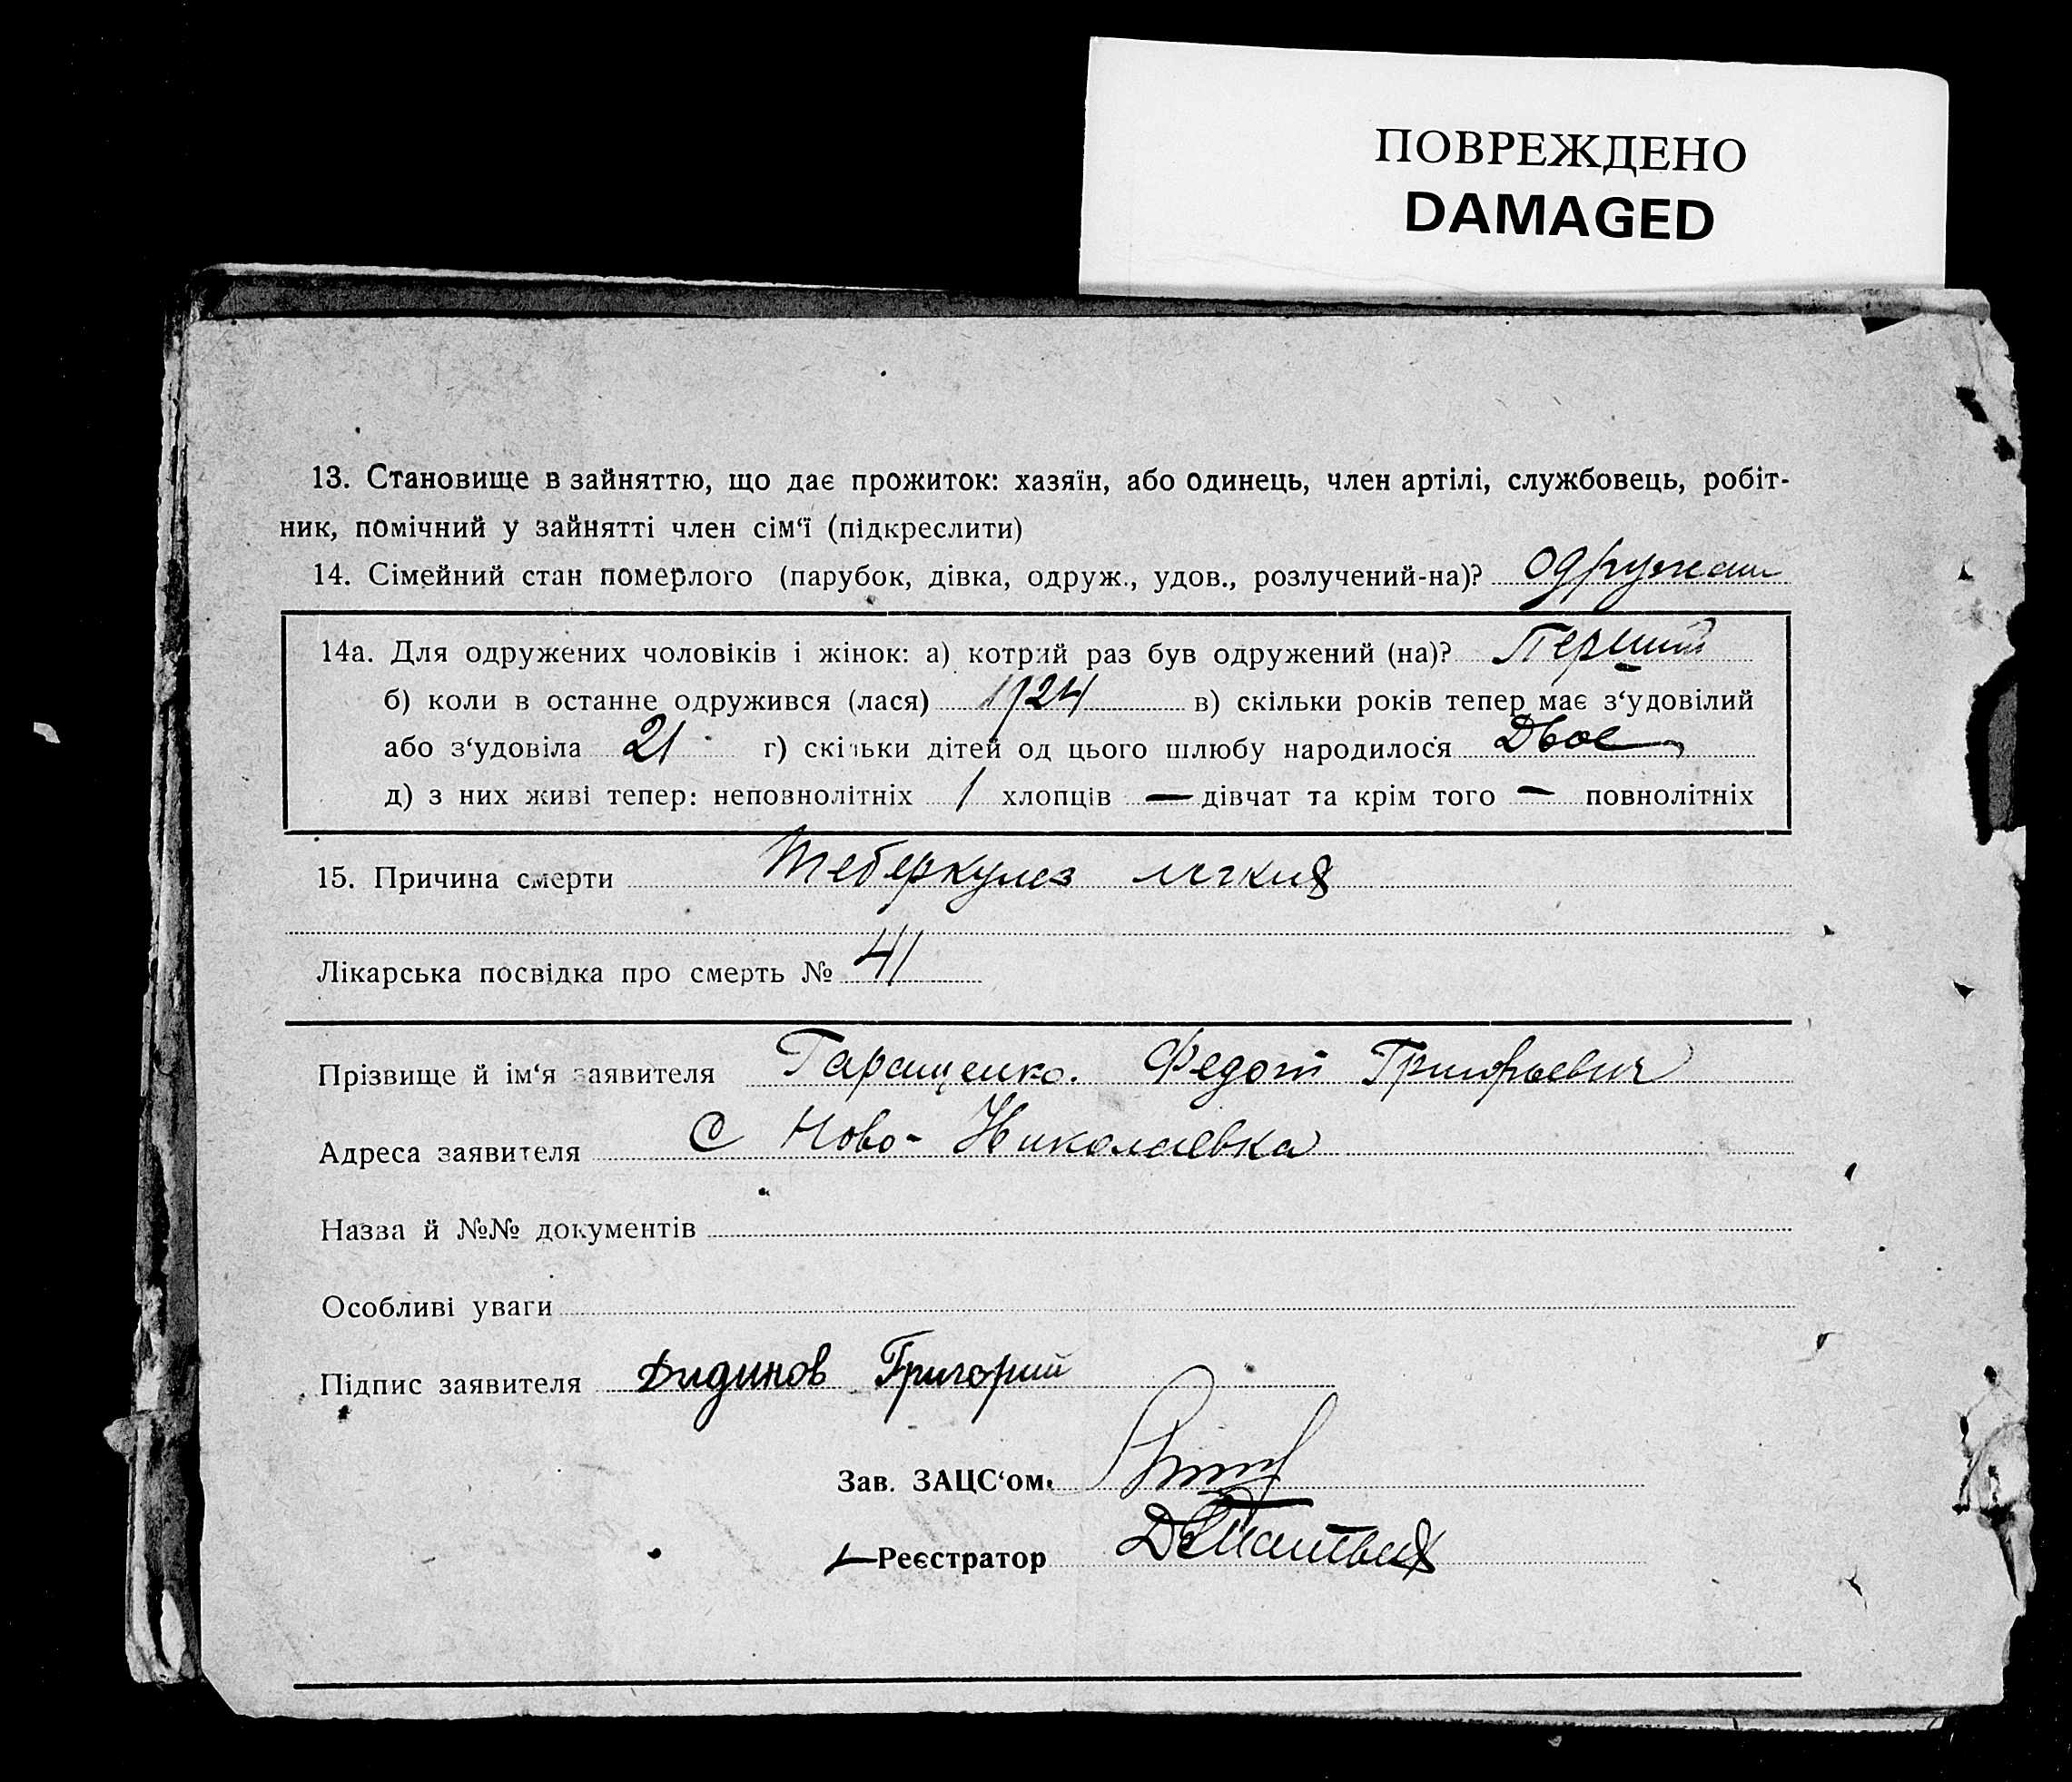 ПОВРЕЖДЕНО
DAMAGED
13. Становище в зайняттю, що дає прожиток: хазяїн, або одинець, член артілі, службовець, робіт-
ник, помічний у зайнятті член сім‘ї (підкреслити)
14. Сімейний стан померлого (парубок, дівка, одруж., удов., розлучений-на)?
14а. Для одружених чоловіків і жінок: а) котрий раз був одружений (на)? Перший
б) коли в останне одружився (лася) 1924 в) скільки років тепер має з‘удовілий
або з‘удовіла 21 г) скільки дітей од цього шлюбу народилося Двое
д) з них живі тепер: неповнолітніх 1 хлопців — дівчат та крім того — повнолітніх
15. Причина смерти Теберкулез легких
Лікарська посвідка про смерть № 41
Прізвище й ім‘я заявителя Гаращенко. Федот Григорьевич
Адреса заявителя С Ново-Николаевка
Назва й №№ документів
Особливі уваги
Підпис заявителя Дидинов Григорий
Зав. ЗАЦС‘ом
Реєстратор